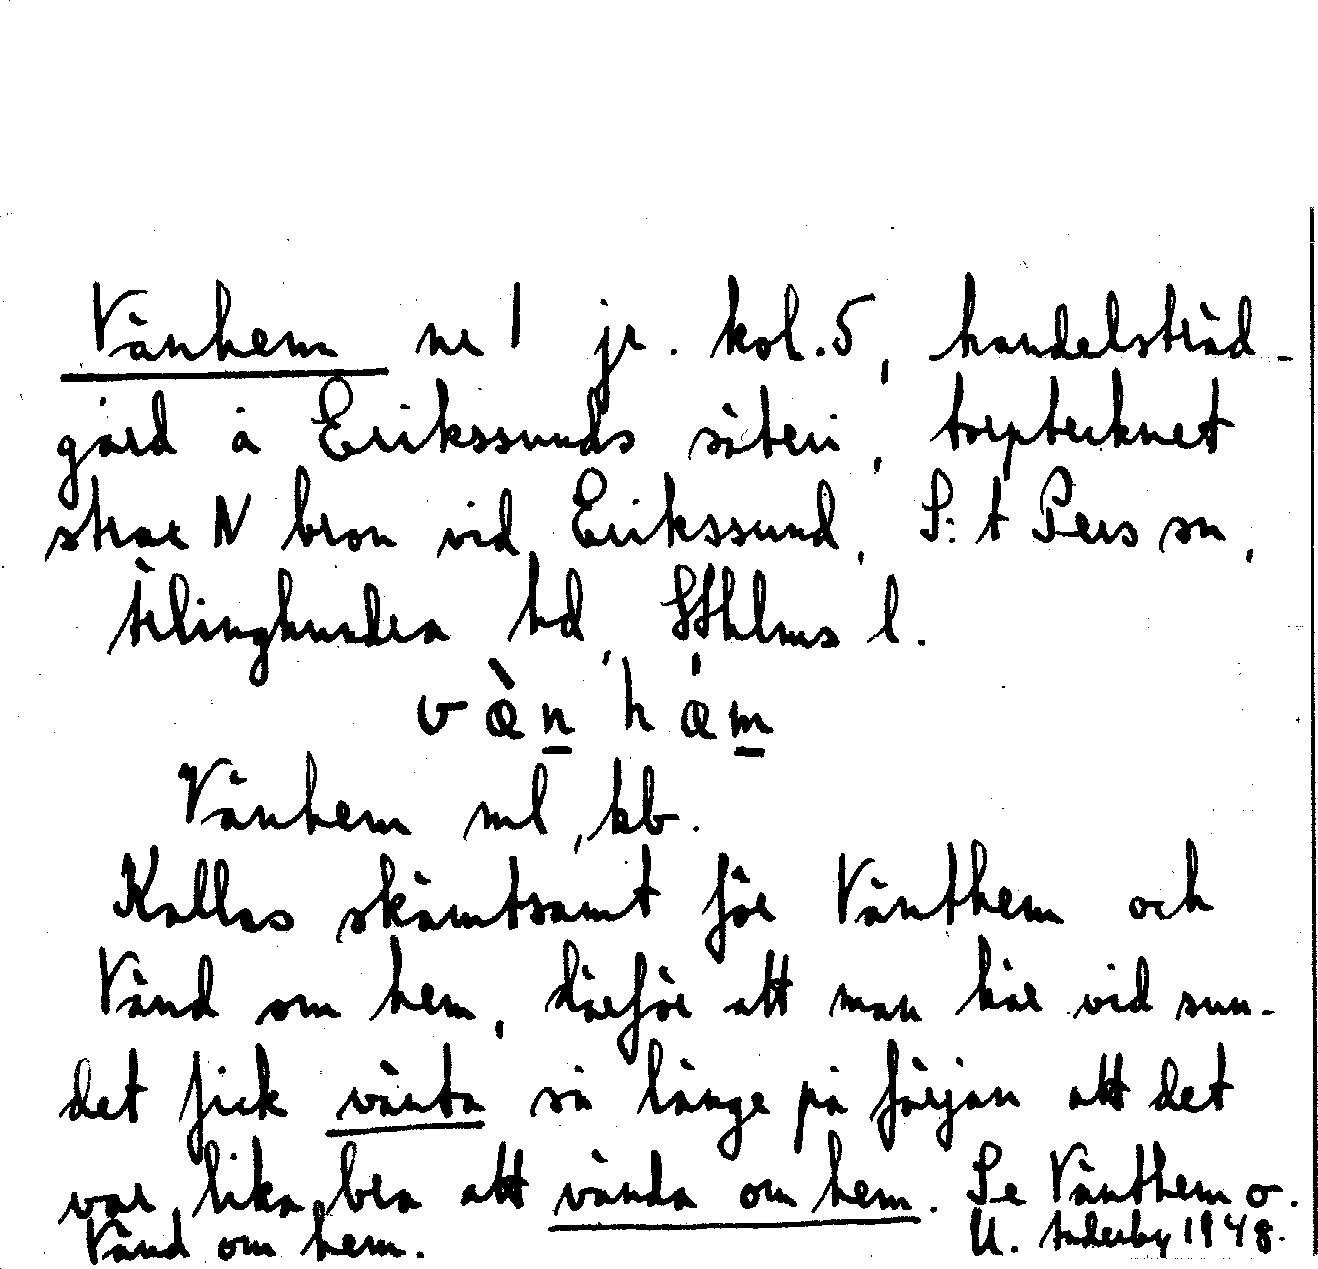 Vänhem nr 1 jr. kol. 5, handelsträd-
gård å Erikssunds säteri, torptecknet
strax N bron vid Erikssund, S:t Pers sn,
Ärlinghundra hd, Sthlms l.
Vänhem ml, kb.
Kallas skämtsamt för Vänthem och
Vänd om hem, därför att man här vid sun-
det fick vänta så länge på färjan att det
var lika bra att vända om hem. Se Vänthem o.
Vänd om hem.
U. Anderby 1948.